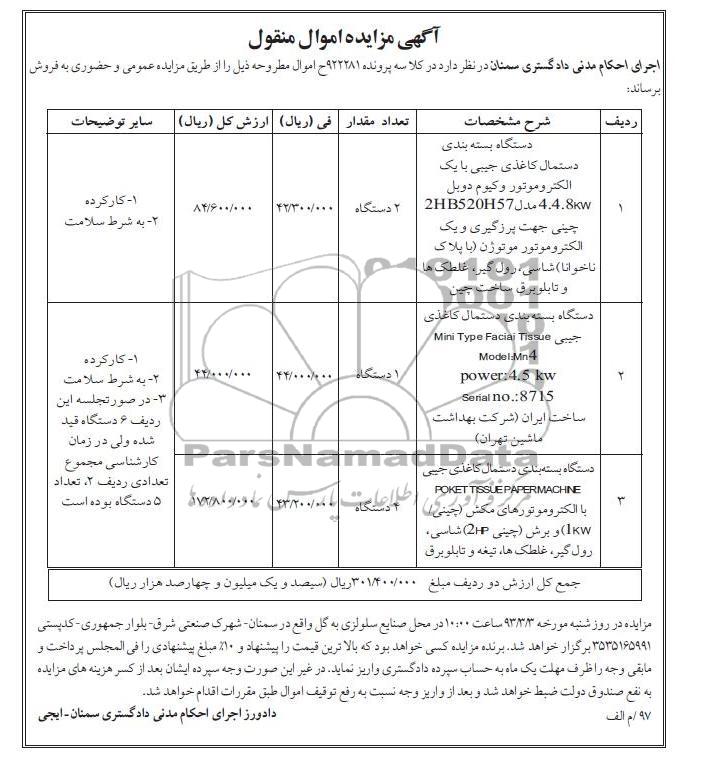 آگهی مزایده اموال منقول
اجرای احکام مدنی دادگستری سمنان در نظر دارد در کلاسه پرونده ۹۲۲۲۸۱ح اموال مطروحه ذیل را از طریق مزایده عمومی و حضوری به فروش
برساند:
ردیف شرح مشخصات تعداد مقدار فی (ریال) ارزش کل (ریال) سایر توضیحات
۱
دستگاه بسته بندی
دستمال کاغذی جیبی با یک
الکتروموتور وکیوم دوبل
4.4.8KW مدل 2HB520H57
چینی جهت پرزگیری و یک
الکتروموتور موتوژن (با پلاک
ناخوانا) شاسی، رول گیر، غلطک ها
و تابلو برق ساخت چین
۲ دستگاه
۴۲/۳۰۰/۰۰۰
۸۴/۶۰۰/۰۰۰
۱- کارکرده
۲- به شرط سلامت
۲
دستگاه بسته‌بندی دستمال کاغذی
جیبی Mini Type Faciai Tissue
Model:Mn4
power:4.5 kw
Serial no.:8715
ساخت ایران (شرکت بهداشت
ماشین تهران)
۱ دستگاه
۴۴/۰۰۰/۰۰۰
۴۴/۰۰۰/۰۰۰
۱- کارکرده
۲- به شرط سلامت
۳- در صورتجلسه این
ردیف ۶ دستگاه قید
شده ولی در زمان
کارشناسی مجموع
تعدادی ردیف ۲، تعداد
۵ دستگاه بوده است
۳
دستگاه بسته‌بندی دستمال کاغذی جیبی
POKET TISSUE PAPER MACHINE
با الکتروموتورهای مکش (چینی/
1KW) و برش (چینی 2HP) شاسی،
رول گیر، غلطک ها، تیغه و تابلو برق
۴ دستگاه
۴۳/۲۰۰/۰۰۰
۱۷۲/۸۰۰/۰۰۰
جمع کل ارزش دو ردیف مبلغ ۳۰۱/۴۰۰/۰۰۰ریال (سیصد و یک میلیون و چهارصد هزار ریال)
مزایده در روز شنبه مورخه ۹۳/۳/۳ ساعت ۱۰:۰۰ در محل صنایع سلولزی به گل واقع در سمنان- شهرک صنعتی شرق- بلوار جمهوری- کدپستی
۳۵۳۵۱۶۵۹۹۱ برگزار خواهد شد. برنده مزایده کسی خواهد بود که بالاترین قیمت را پیشنهاد و ۱۰٪ مبلغ پیشنهادی را فی المجلس پرداخت و
مابقی وجه را ظرف مهلت یک ماه به حساب سپرده دادگستری واریز نماید. در غیر این صورت وجه سپرده ایشان بعد از کسر هزینه های مزایده
به نفع صندوق دولت ضبط خواهد شد و بعد از واریز وجه نسبت به رفع توقیف اموال طبق مقررات اقدام خواهد شد.
۹۷ /م الف
دادورز اجرای احکام مدنی دادگستری سمنان- ایجی
ParsNamadData